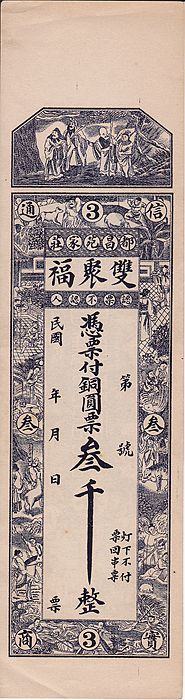 信 3 通
都昌范家莊
雙聚福
認票不認人
第 號
灯下不付
票回串票
憑票付銅圓票叁千整
民國 年 月 日 票
叁 叁
實 3 商